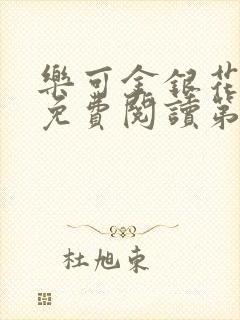 樂可金銀花
免費閱讀第
杜旭東